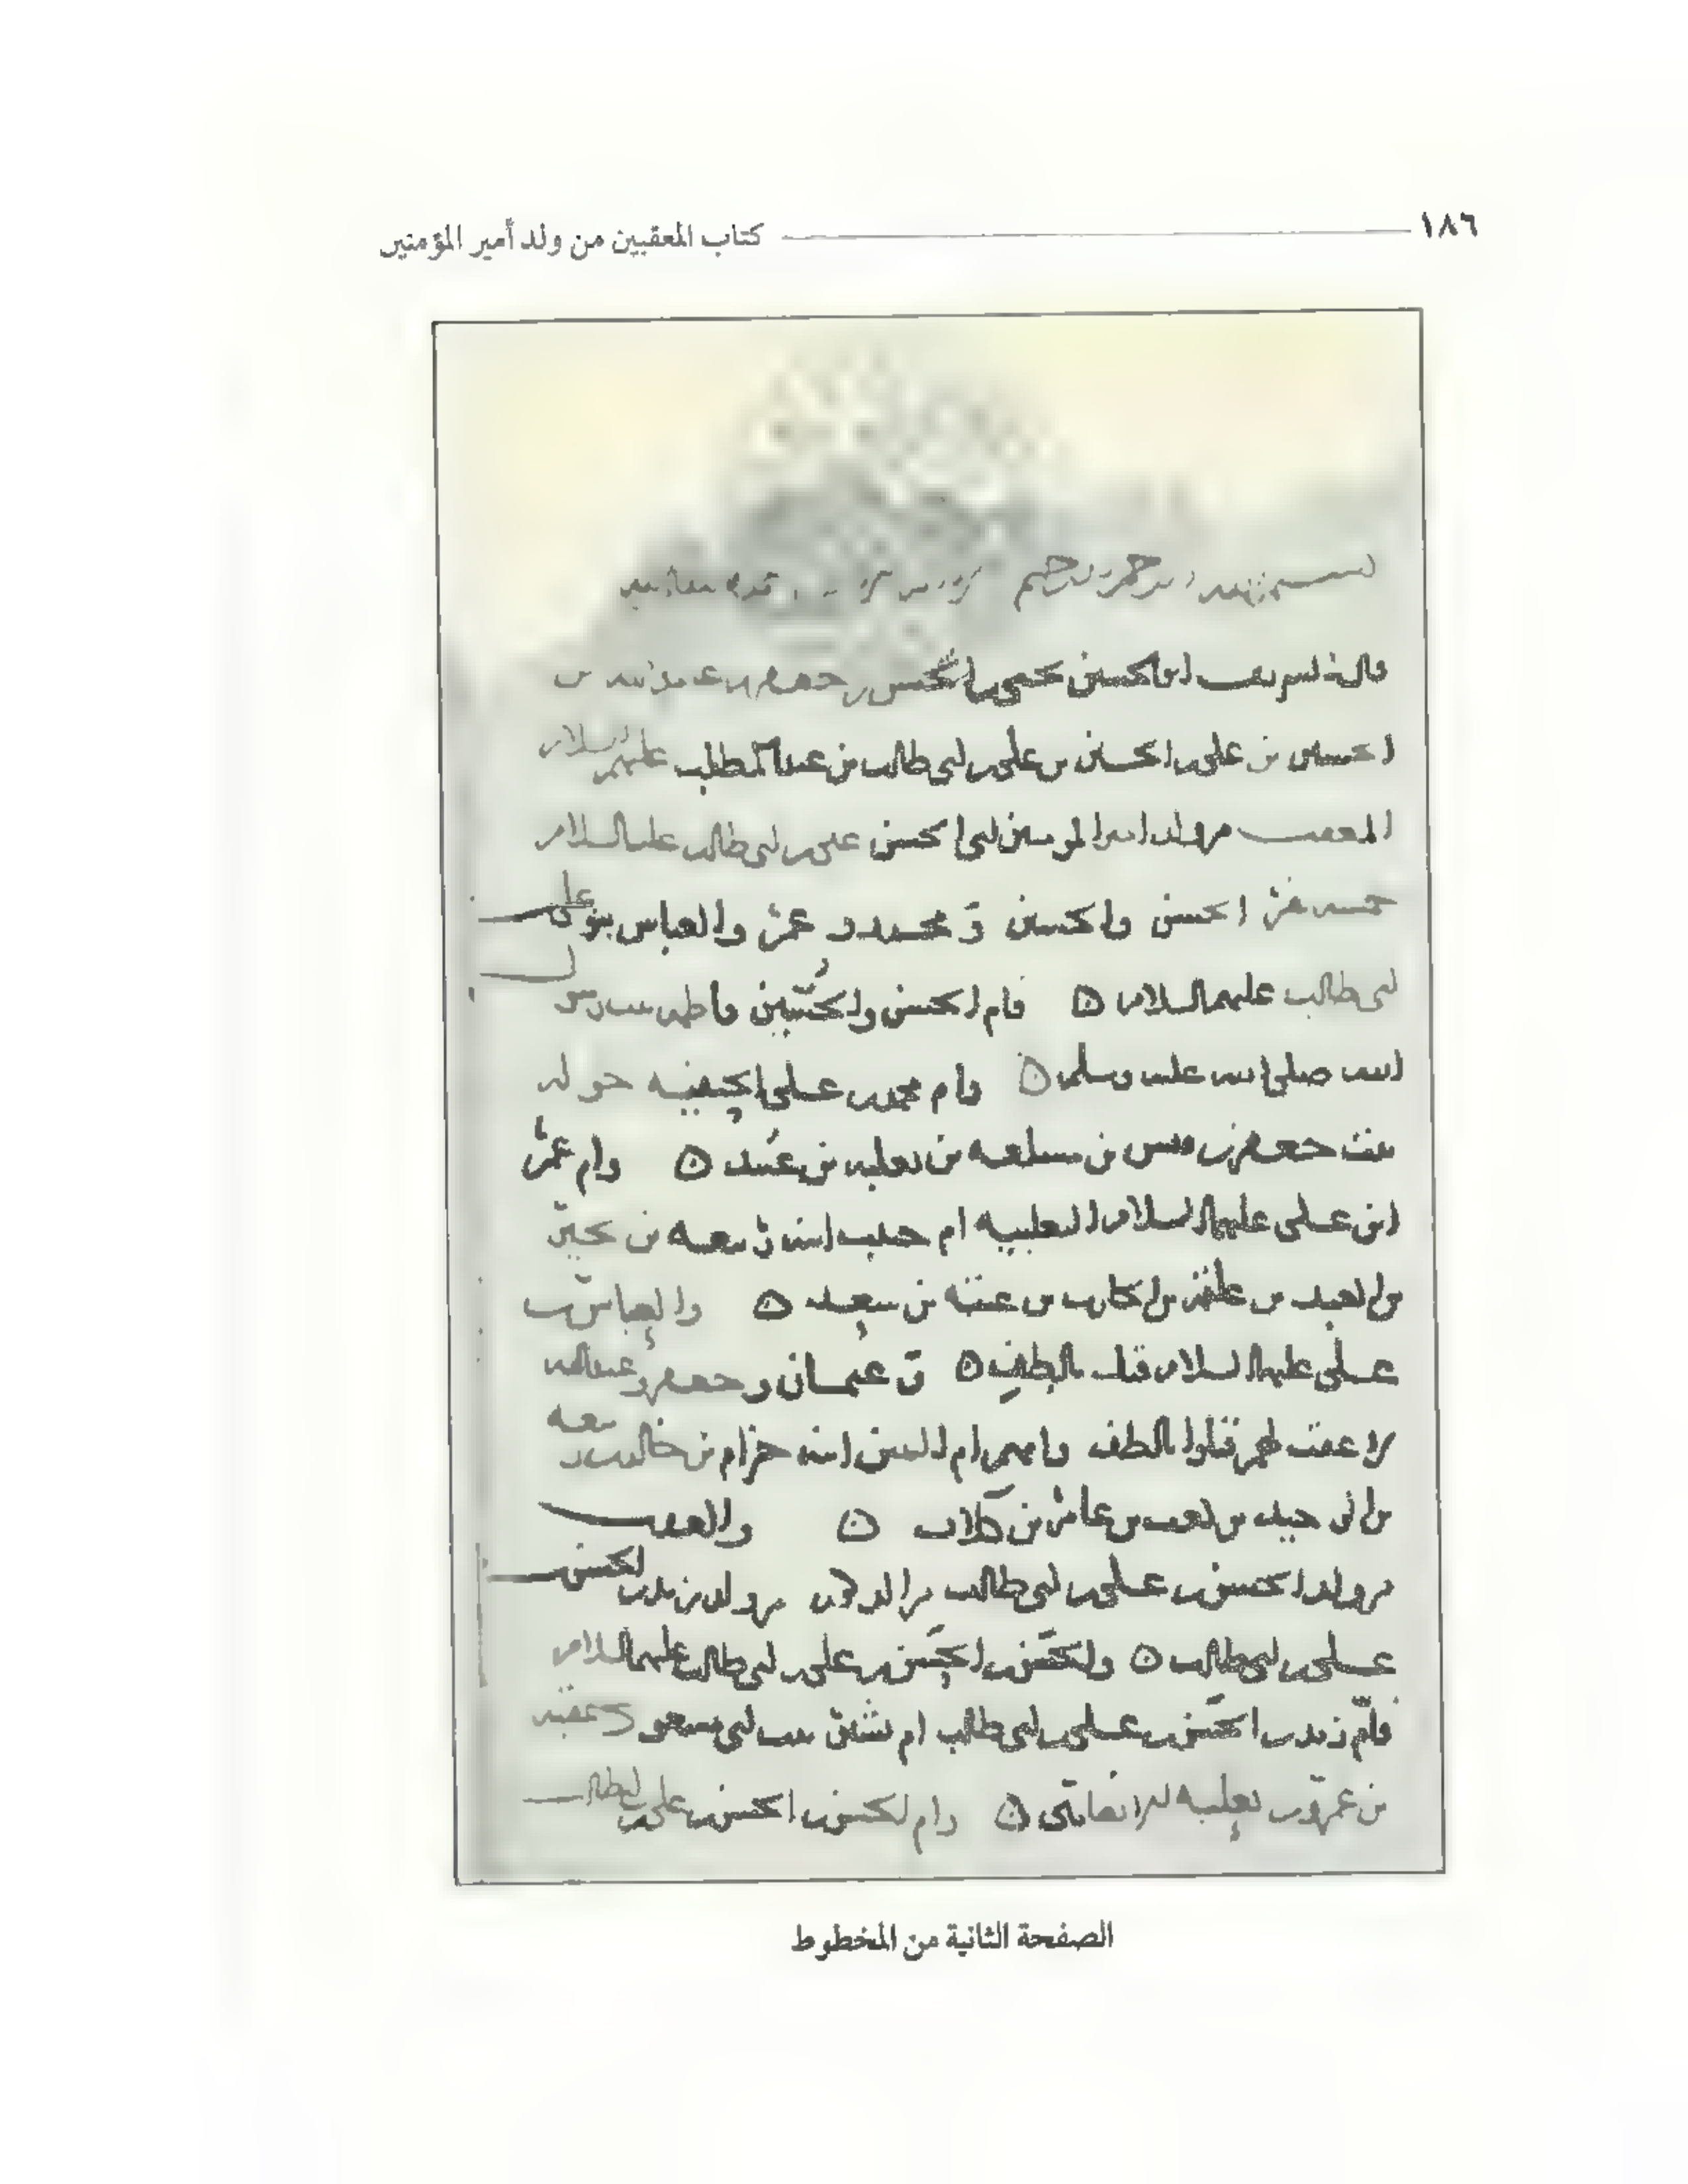 ١٨٦ كتاب المعقبين من ولد أمير المؤمنين
بسم الله الرحمن الرحيم
قال الشريف ابو الحسين يحيى بن الحسن بن جعفر بن عبيد الله بن
الحسين بن علي بن الحسين بن علي بن ابي طالب بن عبد المطلب عليهم السلام
المعقب من ولد امير المومنين ابي الحسن علي بن ابي طالب عليه السلام
خمسة نفر الحسن والحسين و محمد و عمر والعباس بنو علي بن
ابي طالب عليهم السلام ۞ فام الحسن والحسين فاطمة بنت رسول
الله صلى الله عليه وسلم ۞ وام محمد بن علي الحنفية خولة
بنت جعفر بن قيس بن مسلمة بن ثعلبة بن ۞ وام عمر
ابن علي عليهما السلام التغلبية ام حبيب ابنة ربيعة بن بجير
بن العبد بن علقمة بن الحارث بن عتبة بن سعيد ۞ والعباس بن
علي عليهما السلام قتل بالطف ۞ و عثمان و جعفر و عبد الله
لا عقب لهم قتلوا بالطف وامهم ام البنين ابنة حزام بن خالد بن ربيعة
بن كعب بن عامر بن كلاب ۞ والعقب
من ولد الحسن بن علي بن ابي طالب من ولد زيد بن الحسن بن
علي بن ابي طالب ۞ والحسن بن الحسن بن علي بن ابي طالب عليهم السلام
فام زيد بن الحسن بن علي بن ابي طالب ام بشير بنت ابي مسعود عقبة
بن عمرو بن ثعلبة الانصاري ۞ وام الحسن بن الحسن بن علي بن ابي طالب
الصفحة الثانية من المخطوط